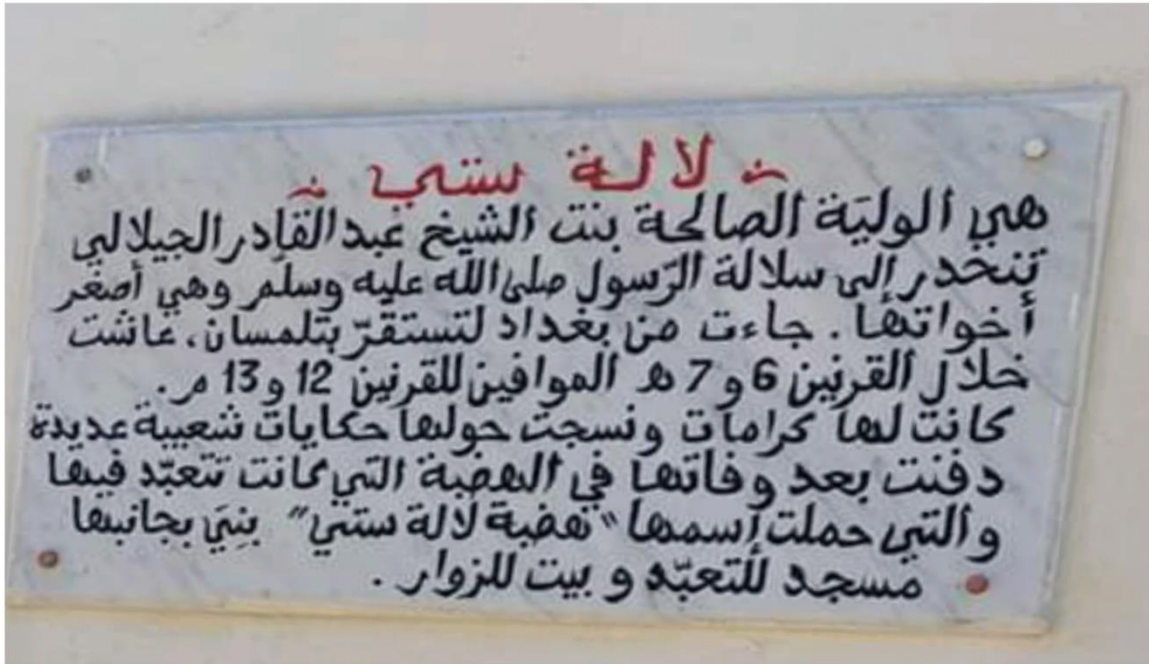 ~ لالة ستي ~
هي الوليَة الصالحة بنت الشيخ عبد القادر الجيلالي
تنحدر إلى سلالة الرّسول صلى الله عليه وسلّم وهي أصغر
أخواتها. جاءت من بغداد لتستقرّ بتلمسان، عاشت
خلال القرنين 6 و 7 هـ الموافين للقرنين 12 و 13 م.
كانت لها كرامات و نسجت حولها حكايات شعبية عديدة
دفنت بعد وفاتها في الهضبة التي كانت تتعبّد فيها
و التي حملت إسمها "هضبة لالة ستي" بنِيَ بجانبها
مسجد للتعبّد و بيت للزوار.